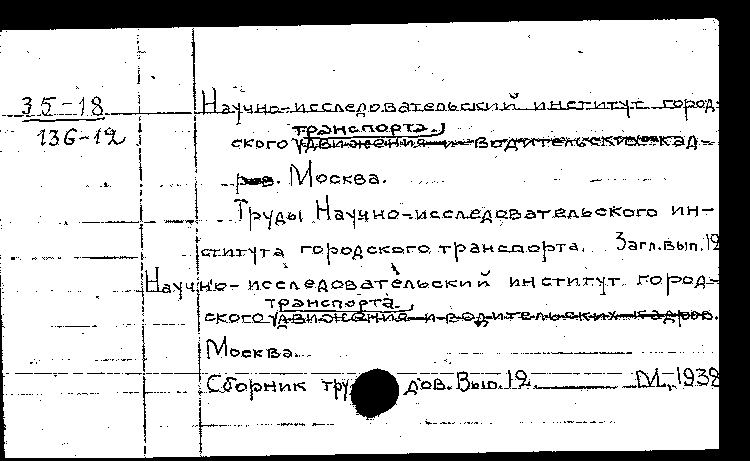 35-18
136-12
Научно-исследовательский институт город-
транспорта.
ского движения и водительских кад-
ров. Москва.
Труды Научно-исследовательского ин-
ститута городского транспорта. Загл.вып.12
Научно-исследовательский институт город-
транспорта.
ского движения и водительских кадров.
Москва.
Сборник трудов. Вып.12. М., 1938